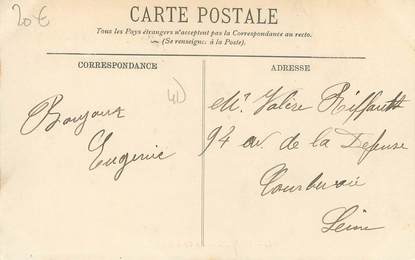 20€
CARTE POSTALE
Tous les Pays étrangers n'acceptent pas la Correspondance au recto.
(Se renseigner à la Poste).
CORRESPONDANCE
ADRESSE
4D
Bonjour
Eugenie
Mr. Valère Riffault
94 av. de la Defense
Courbevoie
Seine